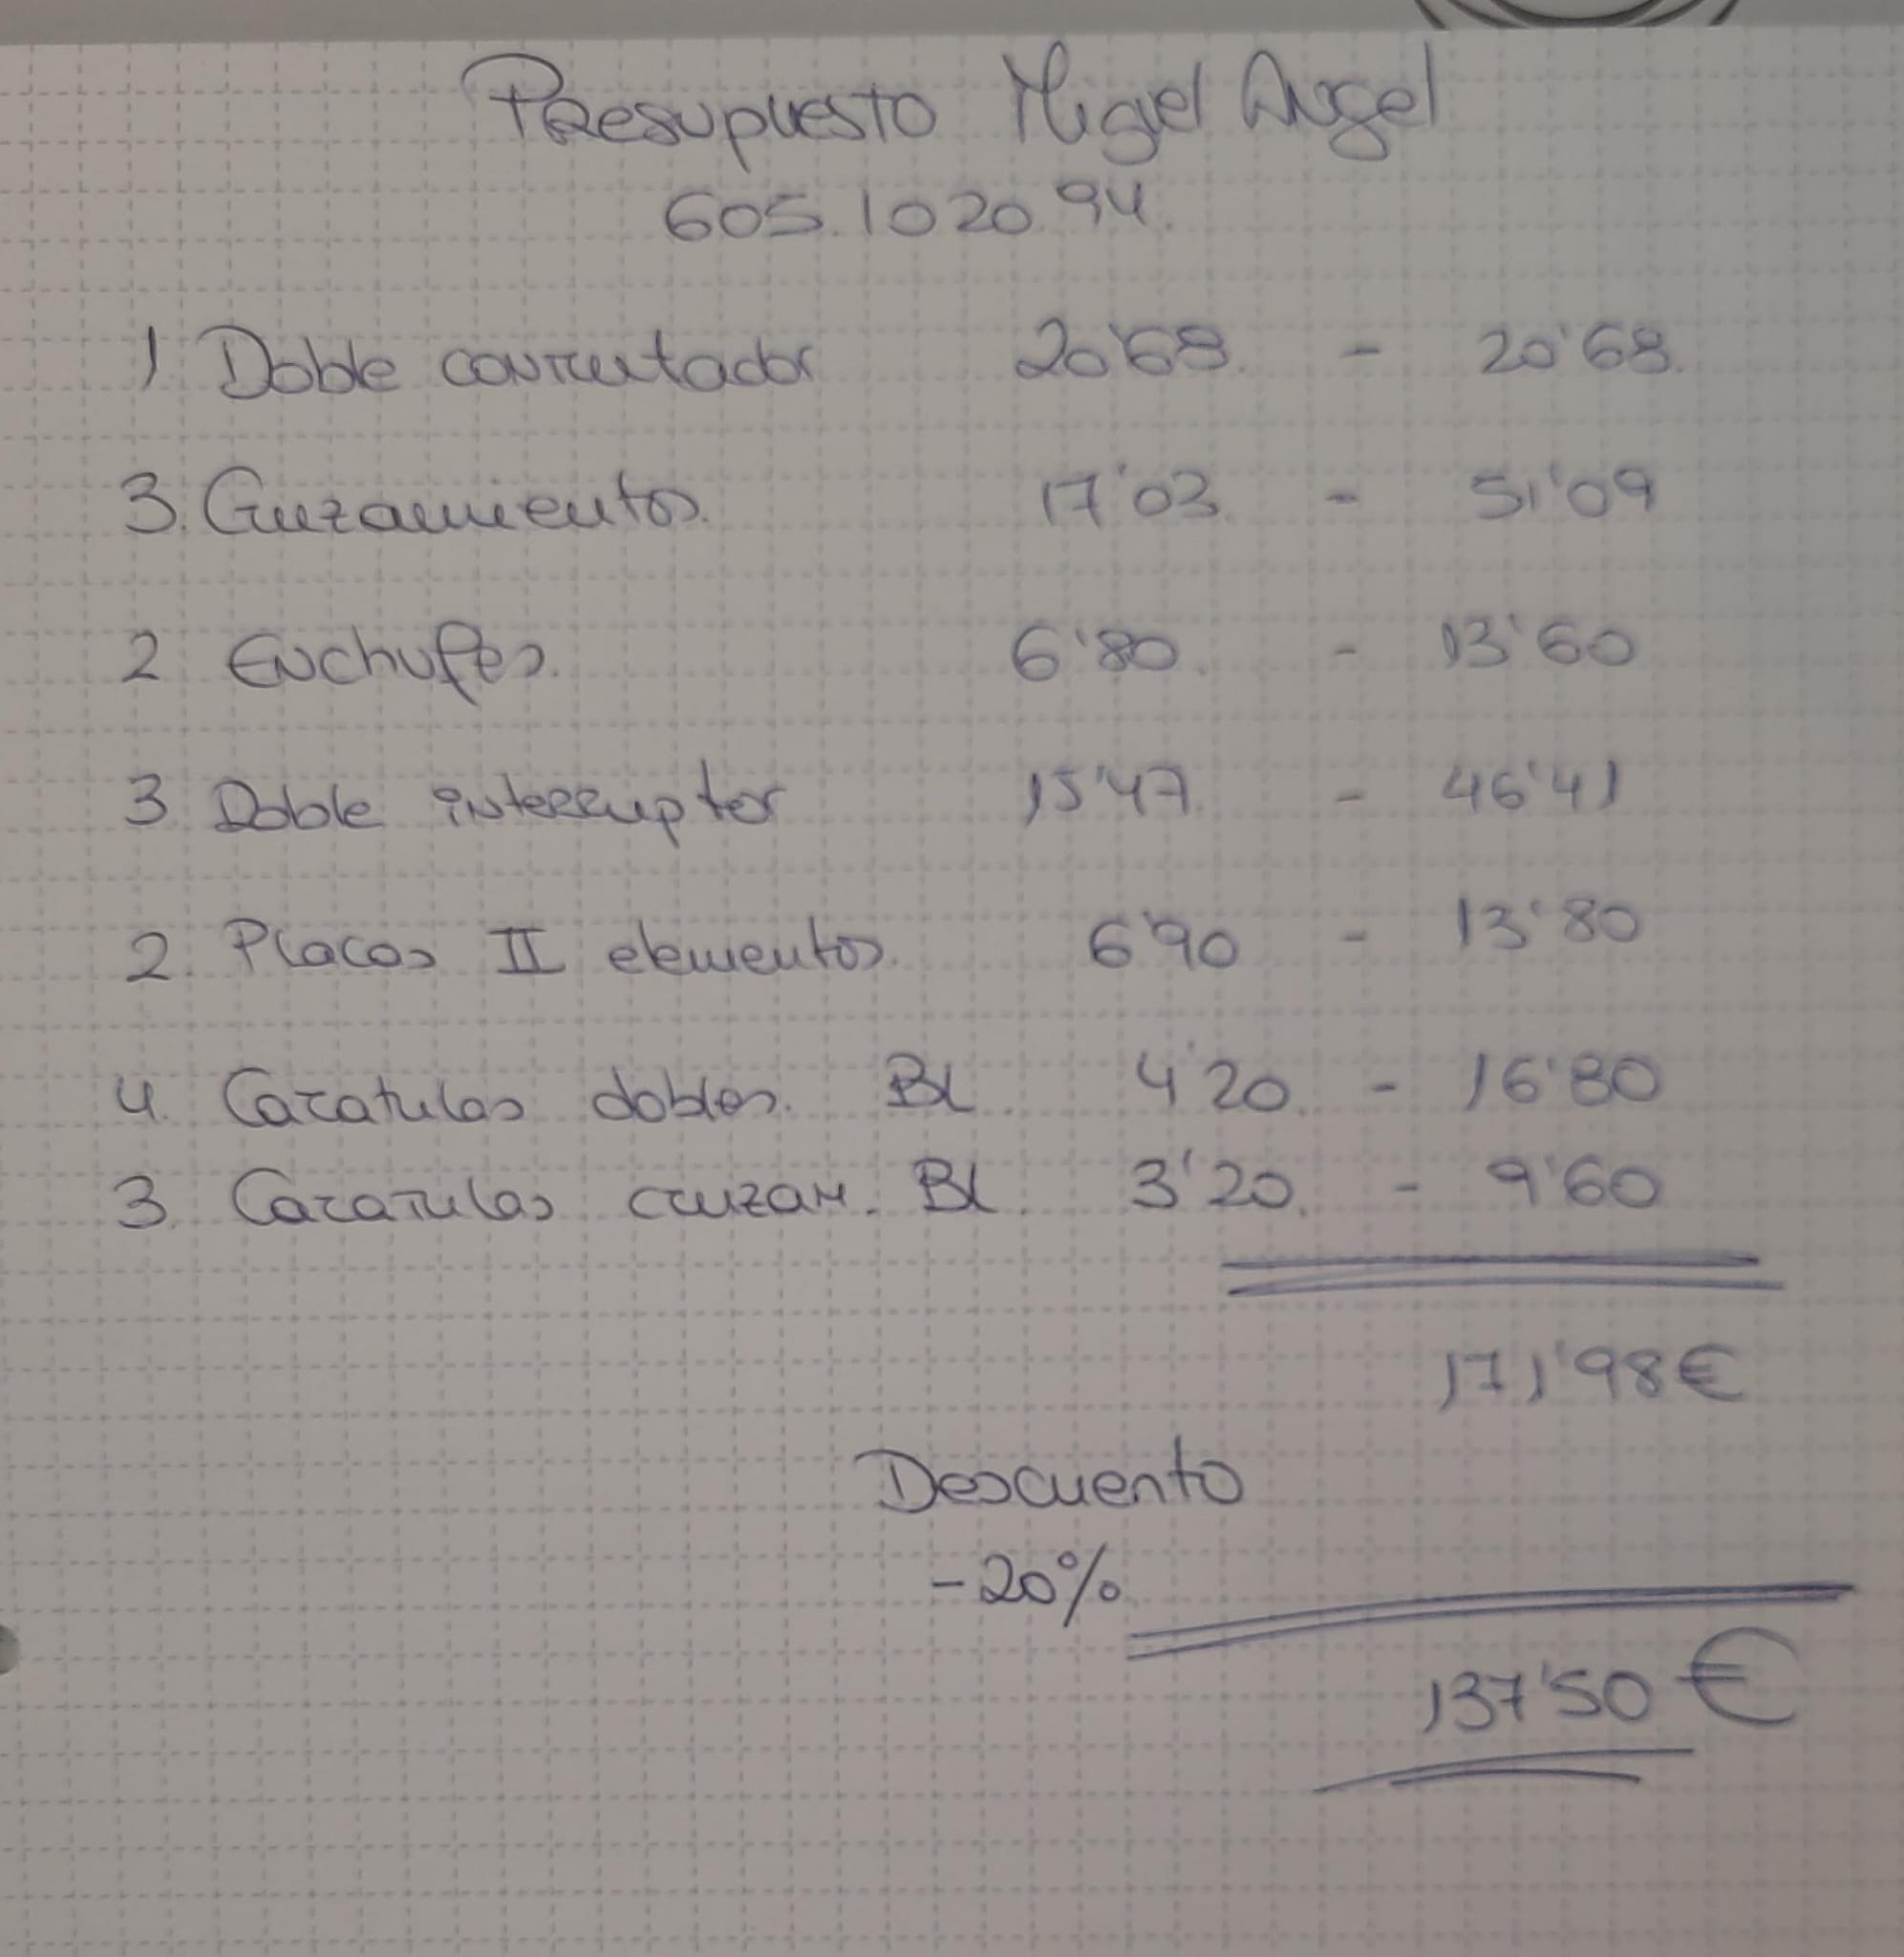 Presupuesto Miguel Angel
605.1020.94.
1 Doble conmutador 20'68. - 20'68.
3. Cruzamientos. 17'03. - 51'09
2 Enchufes. 6'80. - 13'60
3 Doble interruptor 15'47. - 46'41
2. Placas II elementos. 6'90 - 13'80
4. Caratulas dobles. BL. 4'20. - 16'80
3. Caratulas cruzam. BL. 3'20. - 9'60
171'98€
Descuento
-20%
137'50 €